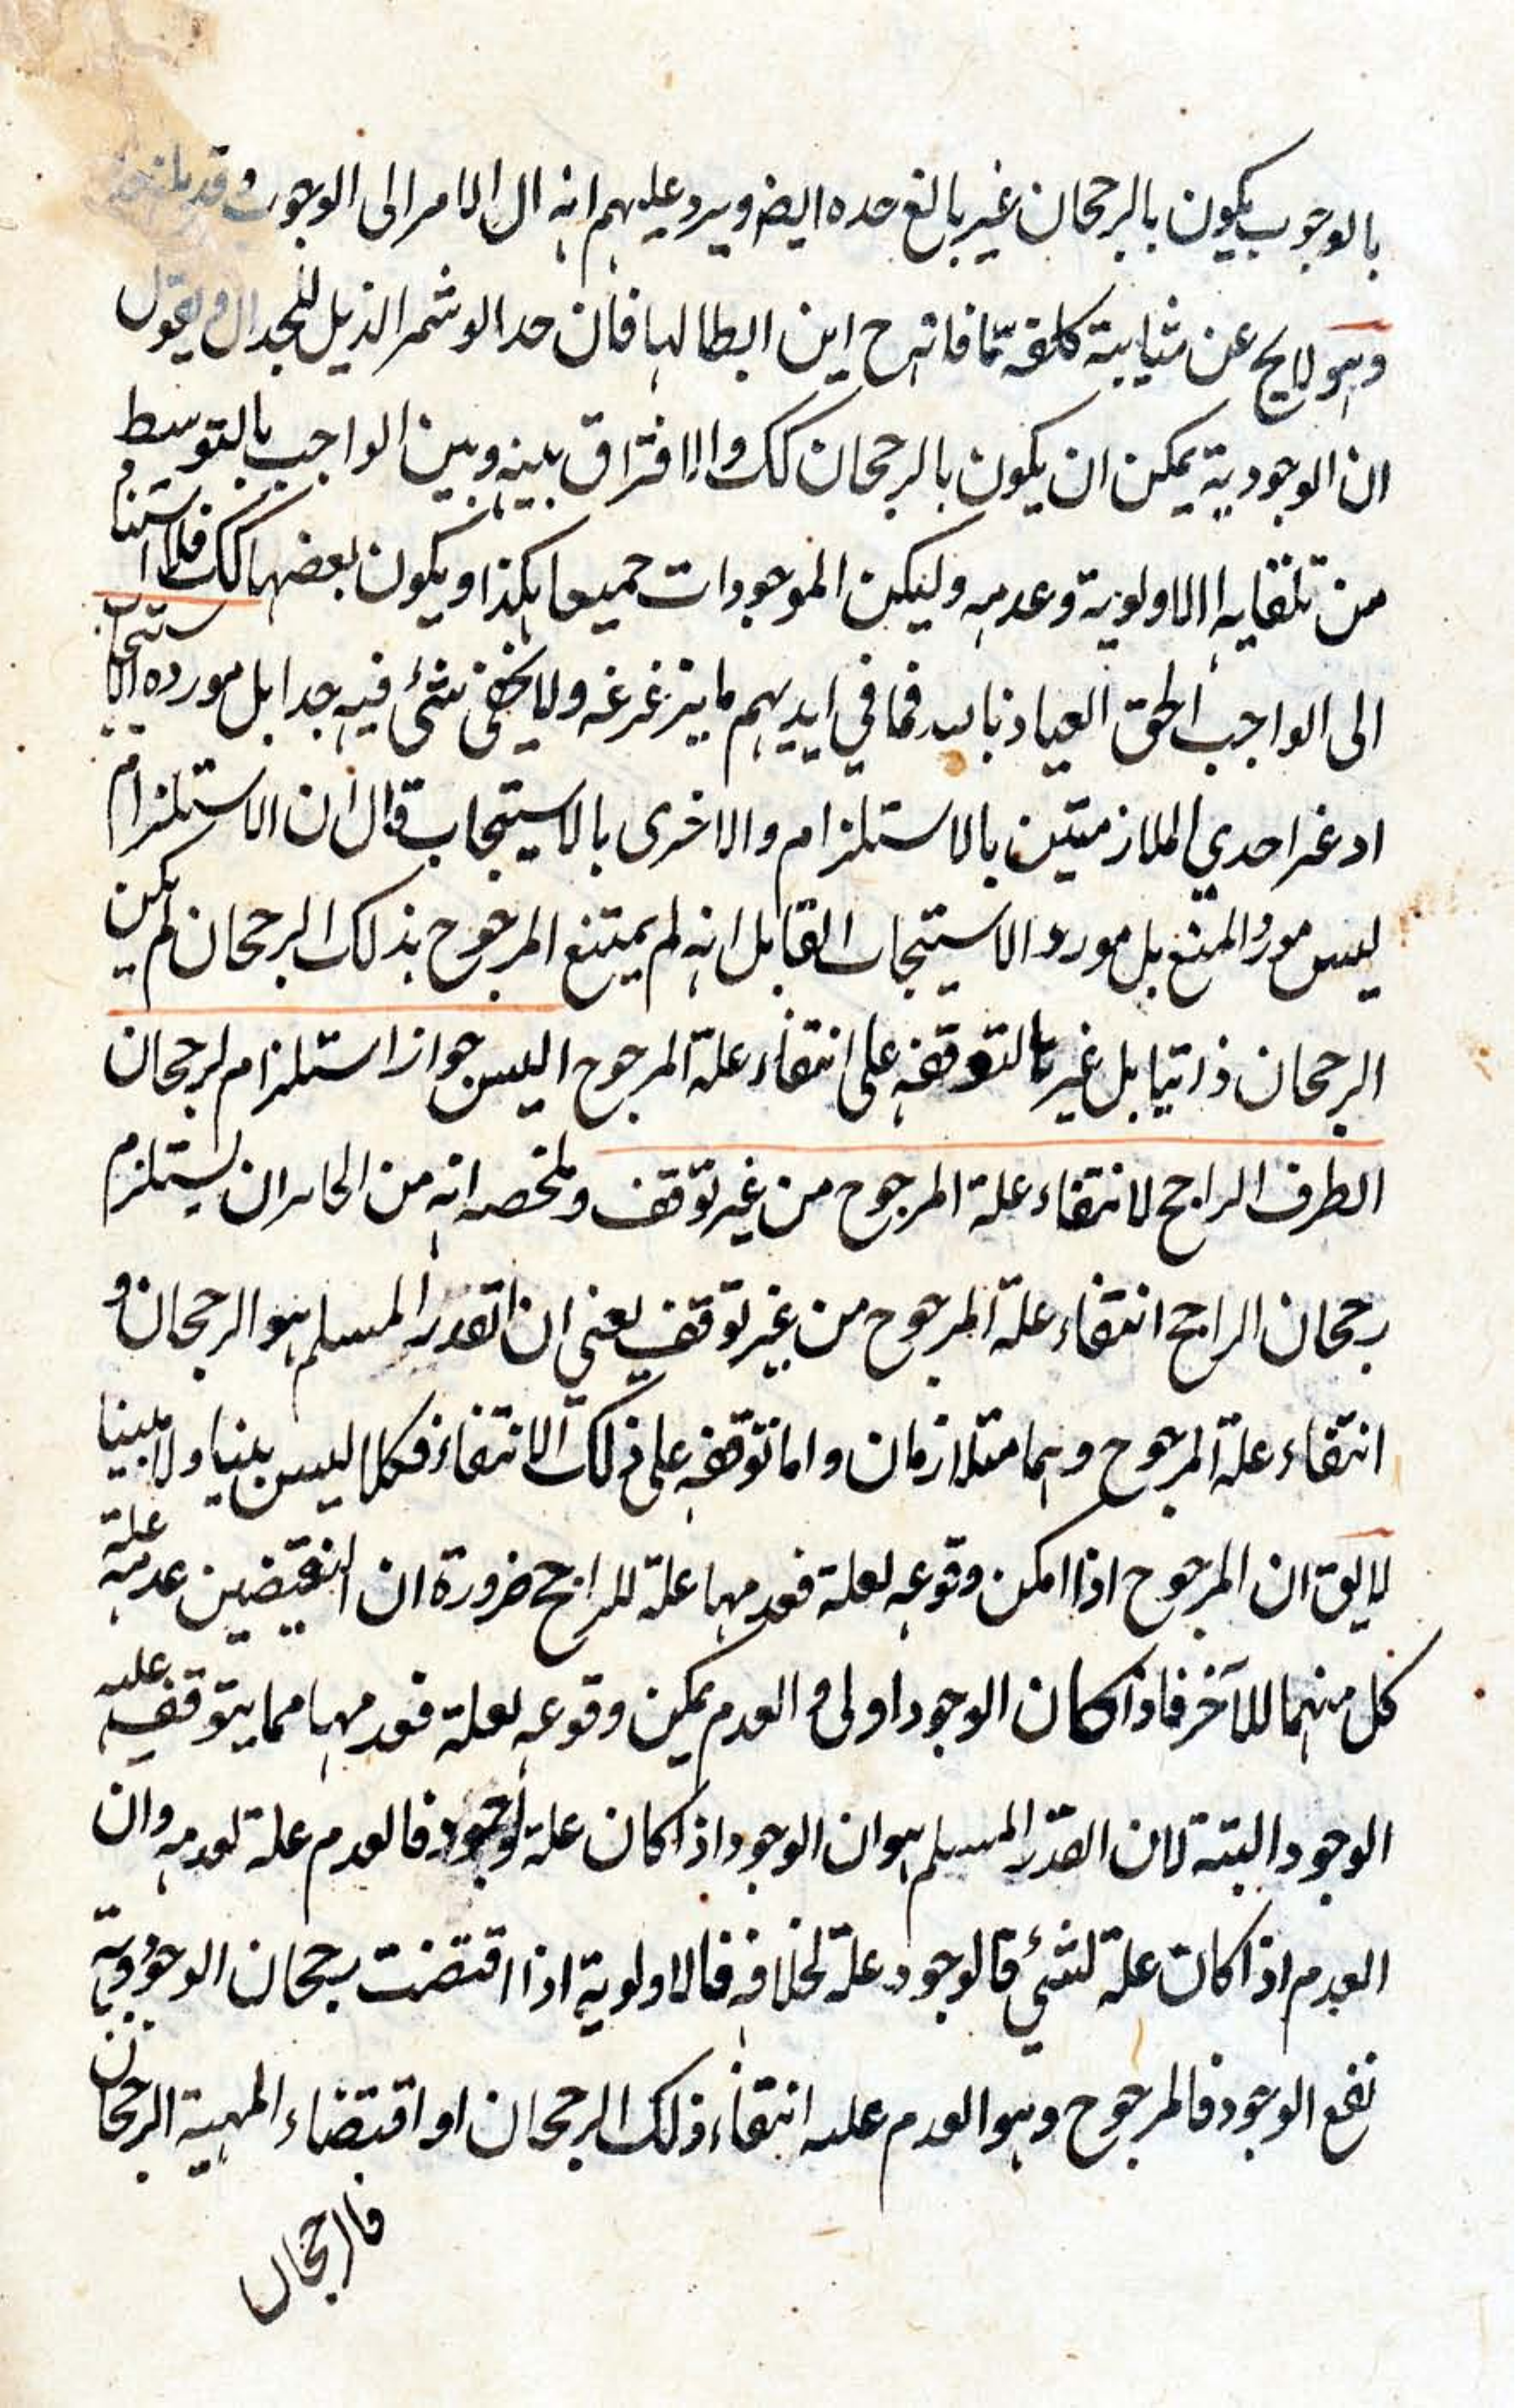 بالوجوب يكون بالرجحان غير بالغ حده ايضو يرد عليهم انه ال الامر الى الوجوب وقد
وهو لايح عن مثابية كلفة تما فاتهرح اين ابطالها فان حد الو شمر الذيل للجدال ويقول
ان الوجودية يمكن ان يكون بالرجحان كك والافتراق بينه وبين الواجب بالتوسط
من تلقايه الاولوية وعدمه وليكن الموجودات جميعا هكذا ويكون بعضها كك فلا استنام
الى الواجب الحق العياذ بالله فما في ايديهم ما يزغزغه ولا يخفى شئ فيه جدا بل مورده الاستيجاب
ادغر احدي الملازمتين بالاستلزام والاخرى بالاستيجاب قال ان الاستلزام
ليس مورد المنع بل مورد الاستيجاب القابل انه لم يمتنع المرجوح بذلك الرجحان لم يكن
الرجحان ذاتيا بل غيريا لتوقفه على انتفاء علة المرجوح اليس جواز استلزام لرجحان
الطرف الراجح لانتفاء علة المرجوح من غير توقف وملخصه انه من الجايز ان يستلزم
رجحان الراجح انتفاء علة المرجوح من غير توقف يعني ان القدر المسلم هو الرجحان و
انتفاء علة المرجوح وهما متلازمان واما توقفه على ذلك الانتفاء فكلا ليس بينا ولا مبينا
لا يق ان المرجوح اذا امكن وقوعه لعلة فعدمها علة للراجح ضرورة ان النقيضين عدم علة
كل منهما للآخر فاذا كان الوجود اولى والعدم يمكن وقوعه لعلة فعدمها مما يتوقف عليه
الوجود البتة لان القدر المسلم هو ان الوجود اذا كان علة لوجود فالعدم علة لعدمه وان
العدم اذا كان علة لشئ فالوجود علة لخلافه فالاولوية اذا اقتضت رجحان الوجود وبه
نفع الوجود فالمرجوح وهو العدم علته انتفاء ذلك الرجحان او اقتضاء المهية الرجحان
فالرجحان